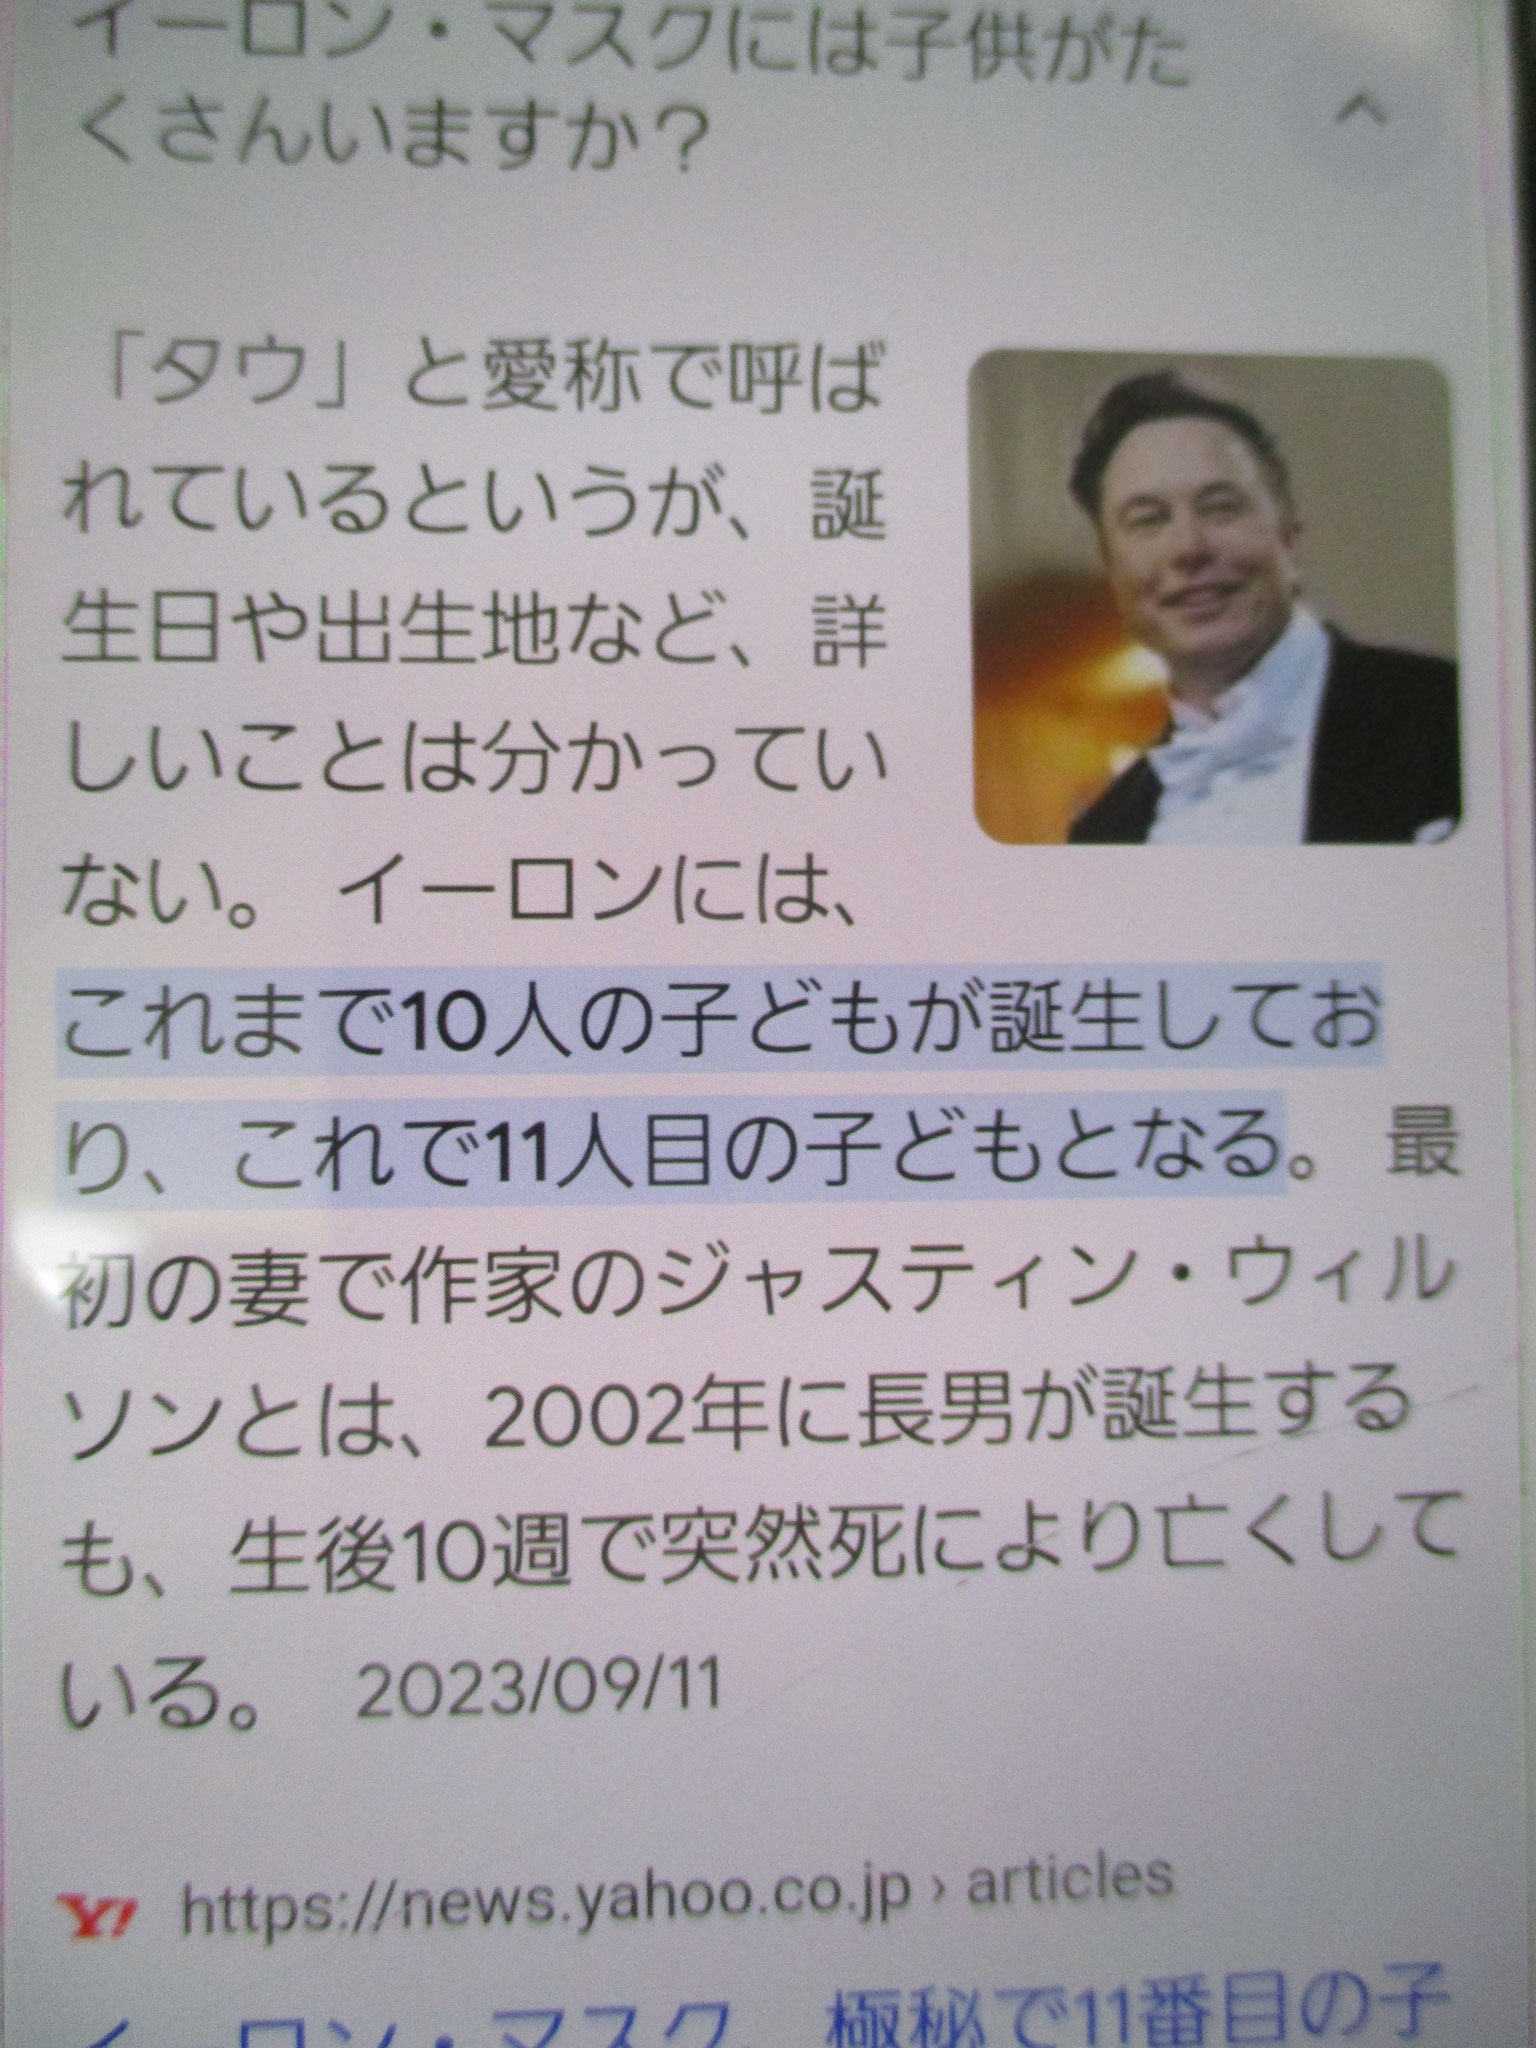 イーロン・マスクには子供がた
くさんいますか？
「タウ」と愛称で呼ば
れているというが、誕
生日や出生地など、詳
しいことは分かってい
ない。 イーロンには、
これまで10人の子どもが誕生してお
り、これで11人目の子どもとなる。 最
初の妻で作家のジャスティン・ウィル
ソンとは、2002年に長男が誕生する
も、生後10週で突然死により亡くして
いる。 2023/09/11
Y! https://news.yahoo.co.jp › articles
イーロン・マスク、極秘で11番目の子